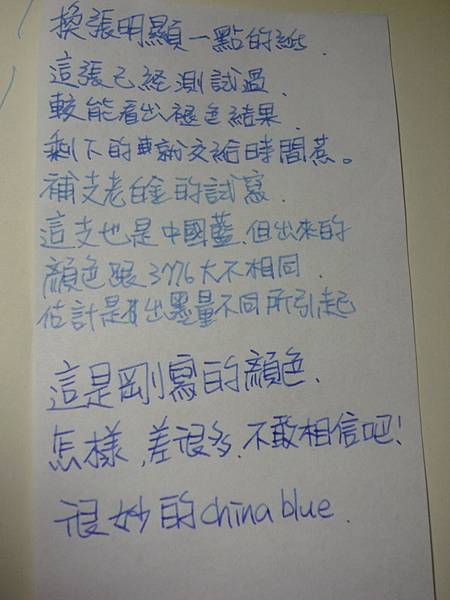 換張明顯一點的紙.
這張已經測試過.
較能看出褪色結果.
剩下的就交給時間蒸。
補支老白金的試寫.
這支也是中國藍.但出來的
顏色跟3776大不相同.
估計是出墨量不同所引起
這是剛寫的顏色.
怎樣,差很多.不敢相信吧!
很妙的china blue.